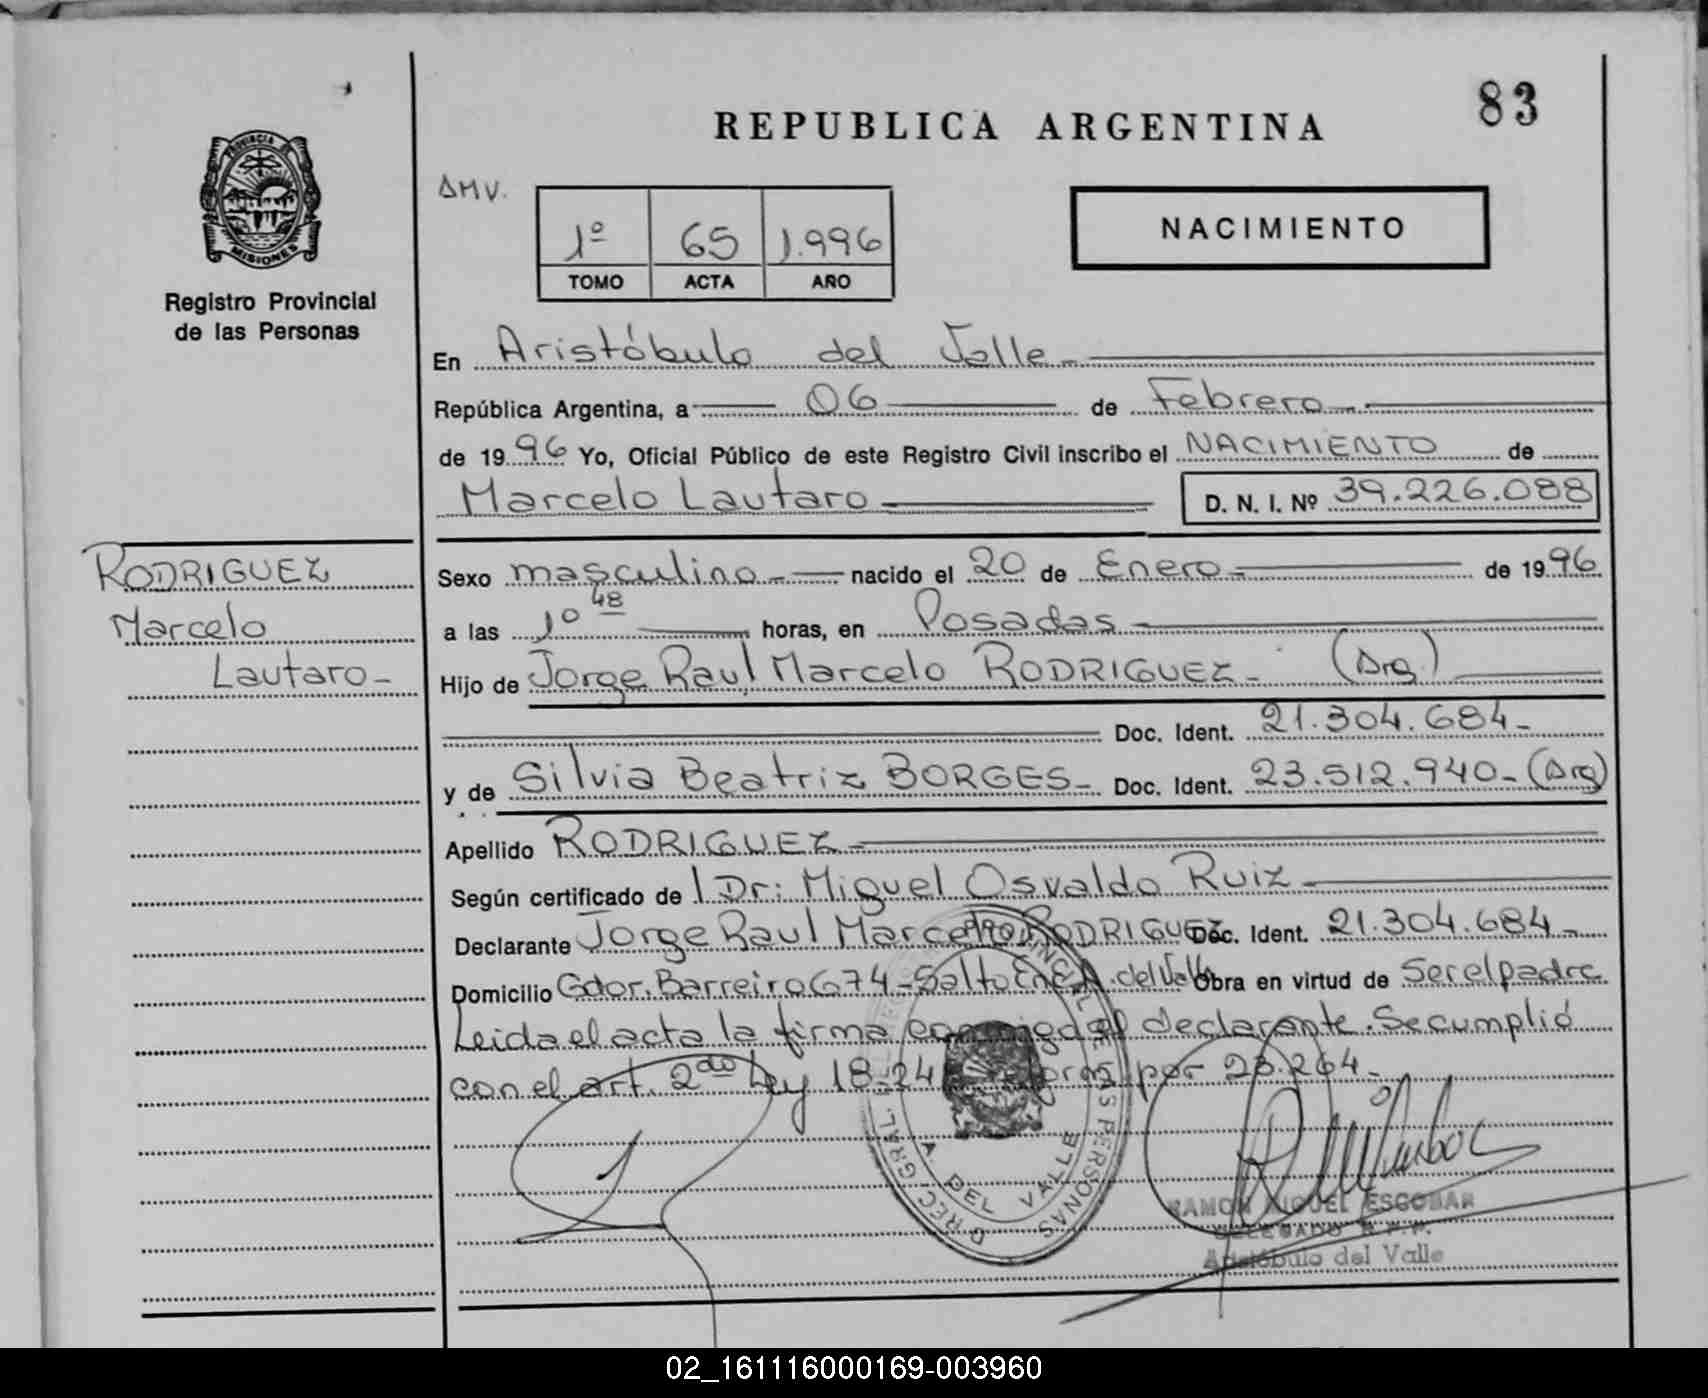 83
REPUBLICA ARGENTINA
PROVINCIA DE
MISIONES
Registro Provincial
de las Personas
AMV.
1º 65 1.996
TOMO ACTA AÑO
NACIMIENTO
En Aristóbulo del Valle
República Argentina, a 06 de Febrero
de 1996 Yo, Oficial Público de este Registro Civil inscribo el NACIMIENTO de
Marcelo Lautaro D. N. I. Nº 39.226.088
RODRIGUEZ
Marcelo
Lautaro-
Sexo masculino nacido el 20 de Enero de 1996
a las 10 48 horas, en Posadas
Hijo de Jorge Raul Marcelo RODRIGUEZ- (Arg)
Doc. Ident. 21.304.684-
y de Silvia Beatriz BORGES- Doc. Ident. 23.512.940-(Arg)
Apellido RODRIGUEZ
Según certificado de Dr: Miguel Osvaldo Ruiz
Declarante Jorge Raul Marcelo RODRIGUEZ Doc. Ident. 21.304.684-
Domicilio Gdor. Barreiro 674-Salto Enc. A. del Valle Obra en virtud de Ser el padre
Leida el acta la firma conmigo el declarante. Se cumplió
con el art. 2do Ley 18.24 por 23.264-
PROVINCIAL DE LAS PERSONAS
A. DEL VALLE
RAMON MIGUEL ESCOBAR
DELEGADO R.P.P.
Aristóbulo del Valle
02_161116000169-003960